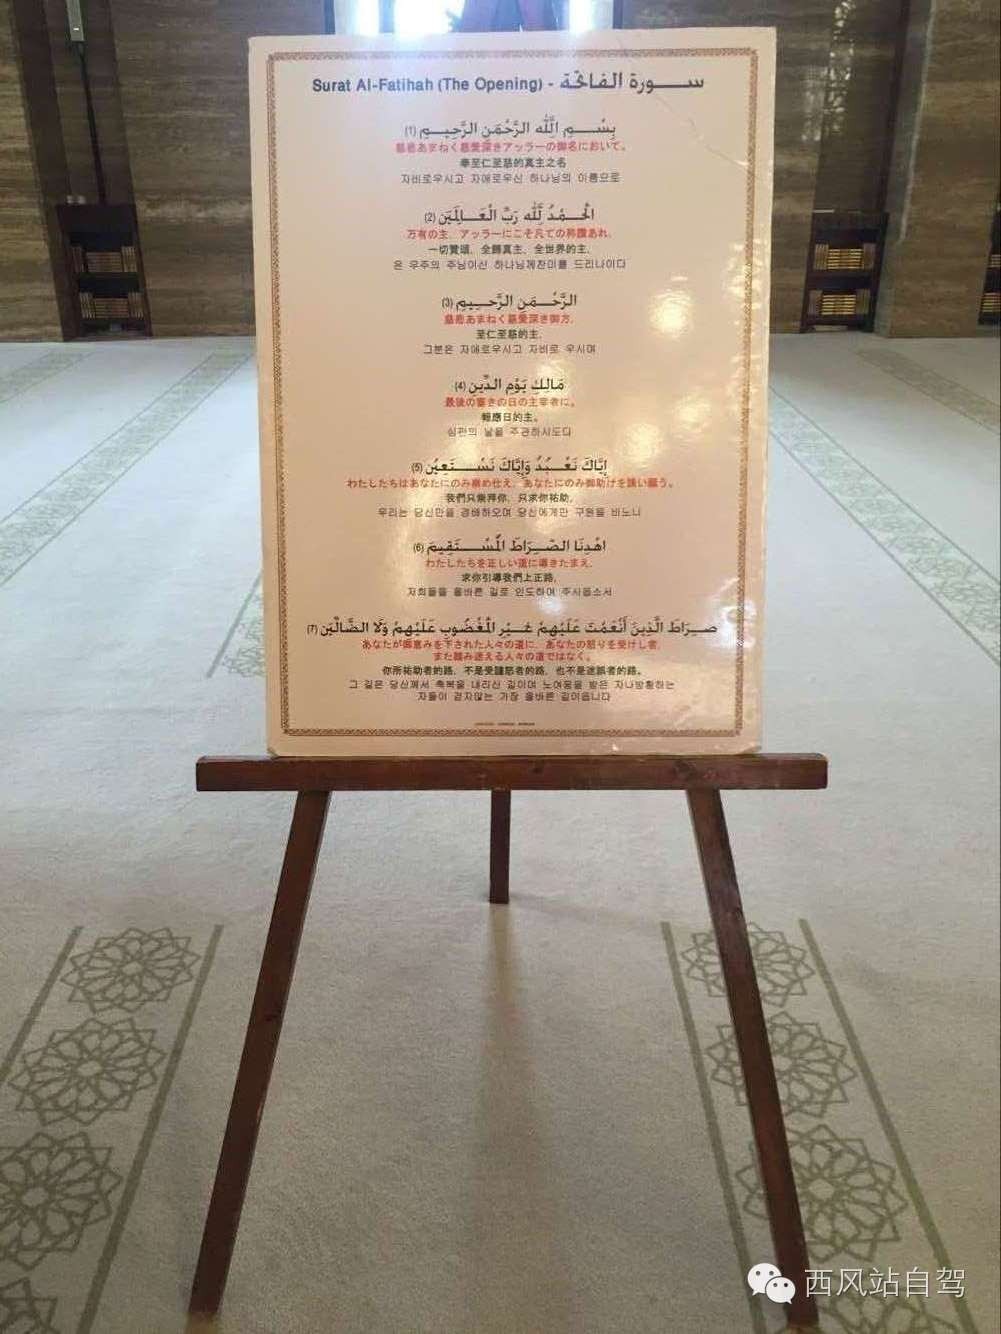 Surat Al-Fatihah (The Opening) - سورة الفاتحة
(1) بِسْمِ اللَّهِ الرَّحْمَنِ الرَّحِيمِ
慈悲あまねく慈愛深きアッラーの御名において。
奉至仁至慈的真主之名
자비로우시고 자애로우신 하나님의 이름으로
(2) الْحَمْدُ لِلَّهِ رَبِّ الْعَالَمِينَ
万有の主、アッラーにこそ凡ての称讃あれ、
一切贊頌，全歸真主，全世界的主，
온 우주의 주님이신 하나님께찬미를 드리나이다
(3) الرَّحْمَنِ الرَّحِيمِ
慈悲あまねく慈愛深き御方、
至仁至慈的主，
그분은 자애로우시고 자비로 우시며
(4) مَالِكِ يَوْمِ الدِّينِ
最後の審きの日の主宰者に。
報應日的主。
심판의 날을 주관하시도다
(5) إِيَّاكَ نَعْبُدُ وَإِيَّاكَ نَسْتَعِينُ
わたしたちはあなたにのみ崇め仕え、あなたにのみ御助けを請い願う。
我們只崇拜你，只求你祐助，
우리는 당신만을 경배하오며 당신에게만 구원을 비노니
(6) اهْدِنَا الصِّرَاطَ الْمُسْتَقِيمَ
わたしたちを正しい道に導きたまえ、
求你引導我們上正路，
저희들을 올바른 길로 인도하여 주시옵소서
(7) صِرَاطَ الَّذِينَ أَنْعَمْتَ عَلَيْهِمْ غَيْرِ الْمَغْضُوبِ عَلَيْهِمْ وَلَا الضَّالِّينَ
あなたが御恵みを下された人々の道に、あなたの怒りを受けし者、
また踏み迷える人々の道ではなく。
你所祐助者的路，不是受譴怒者的路，也不是迷誤者的路。
그 길은 당신께서 축복을 내리신 길이며 노여움을 받은 자나방황하는
자들이 걷지않는 가장 올바른 길이옵니다
西风站自驾